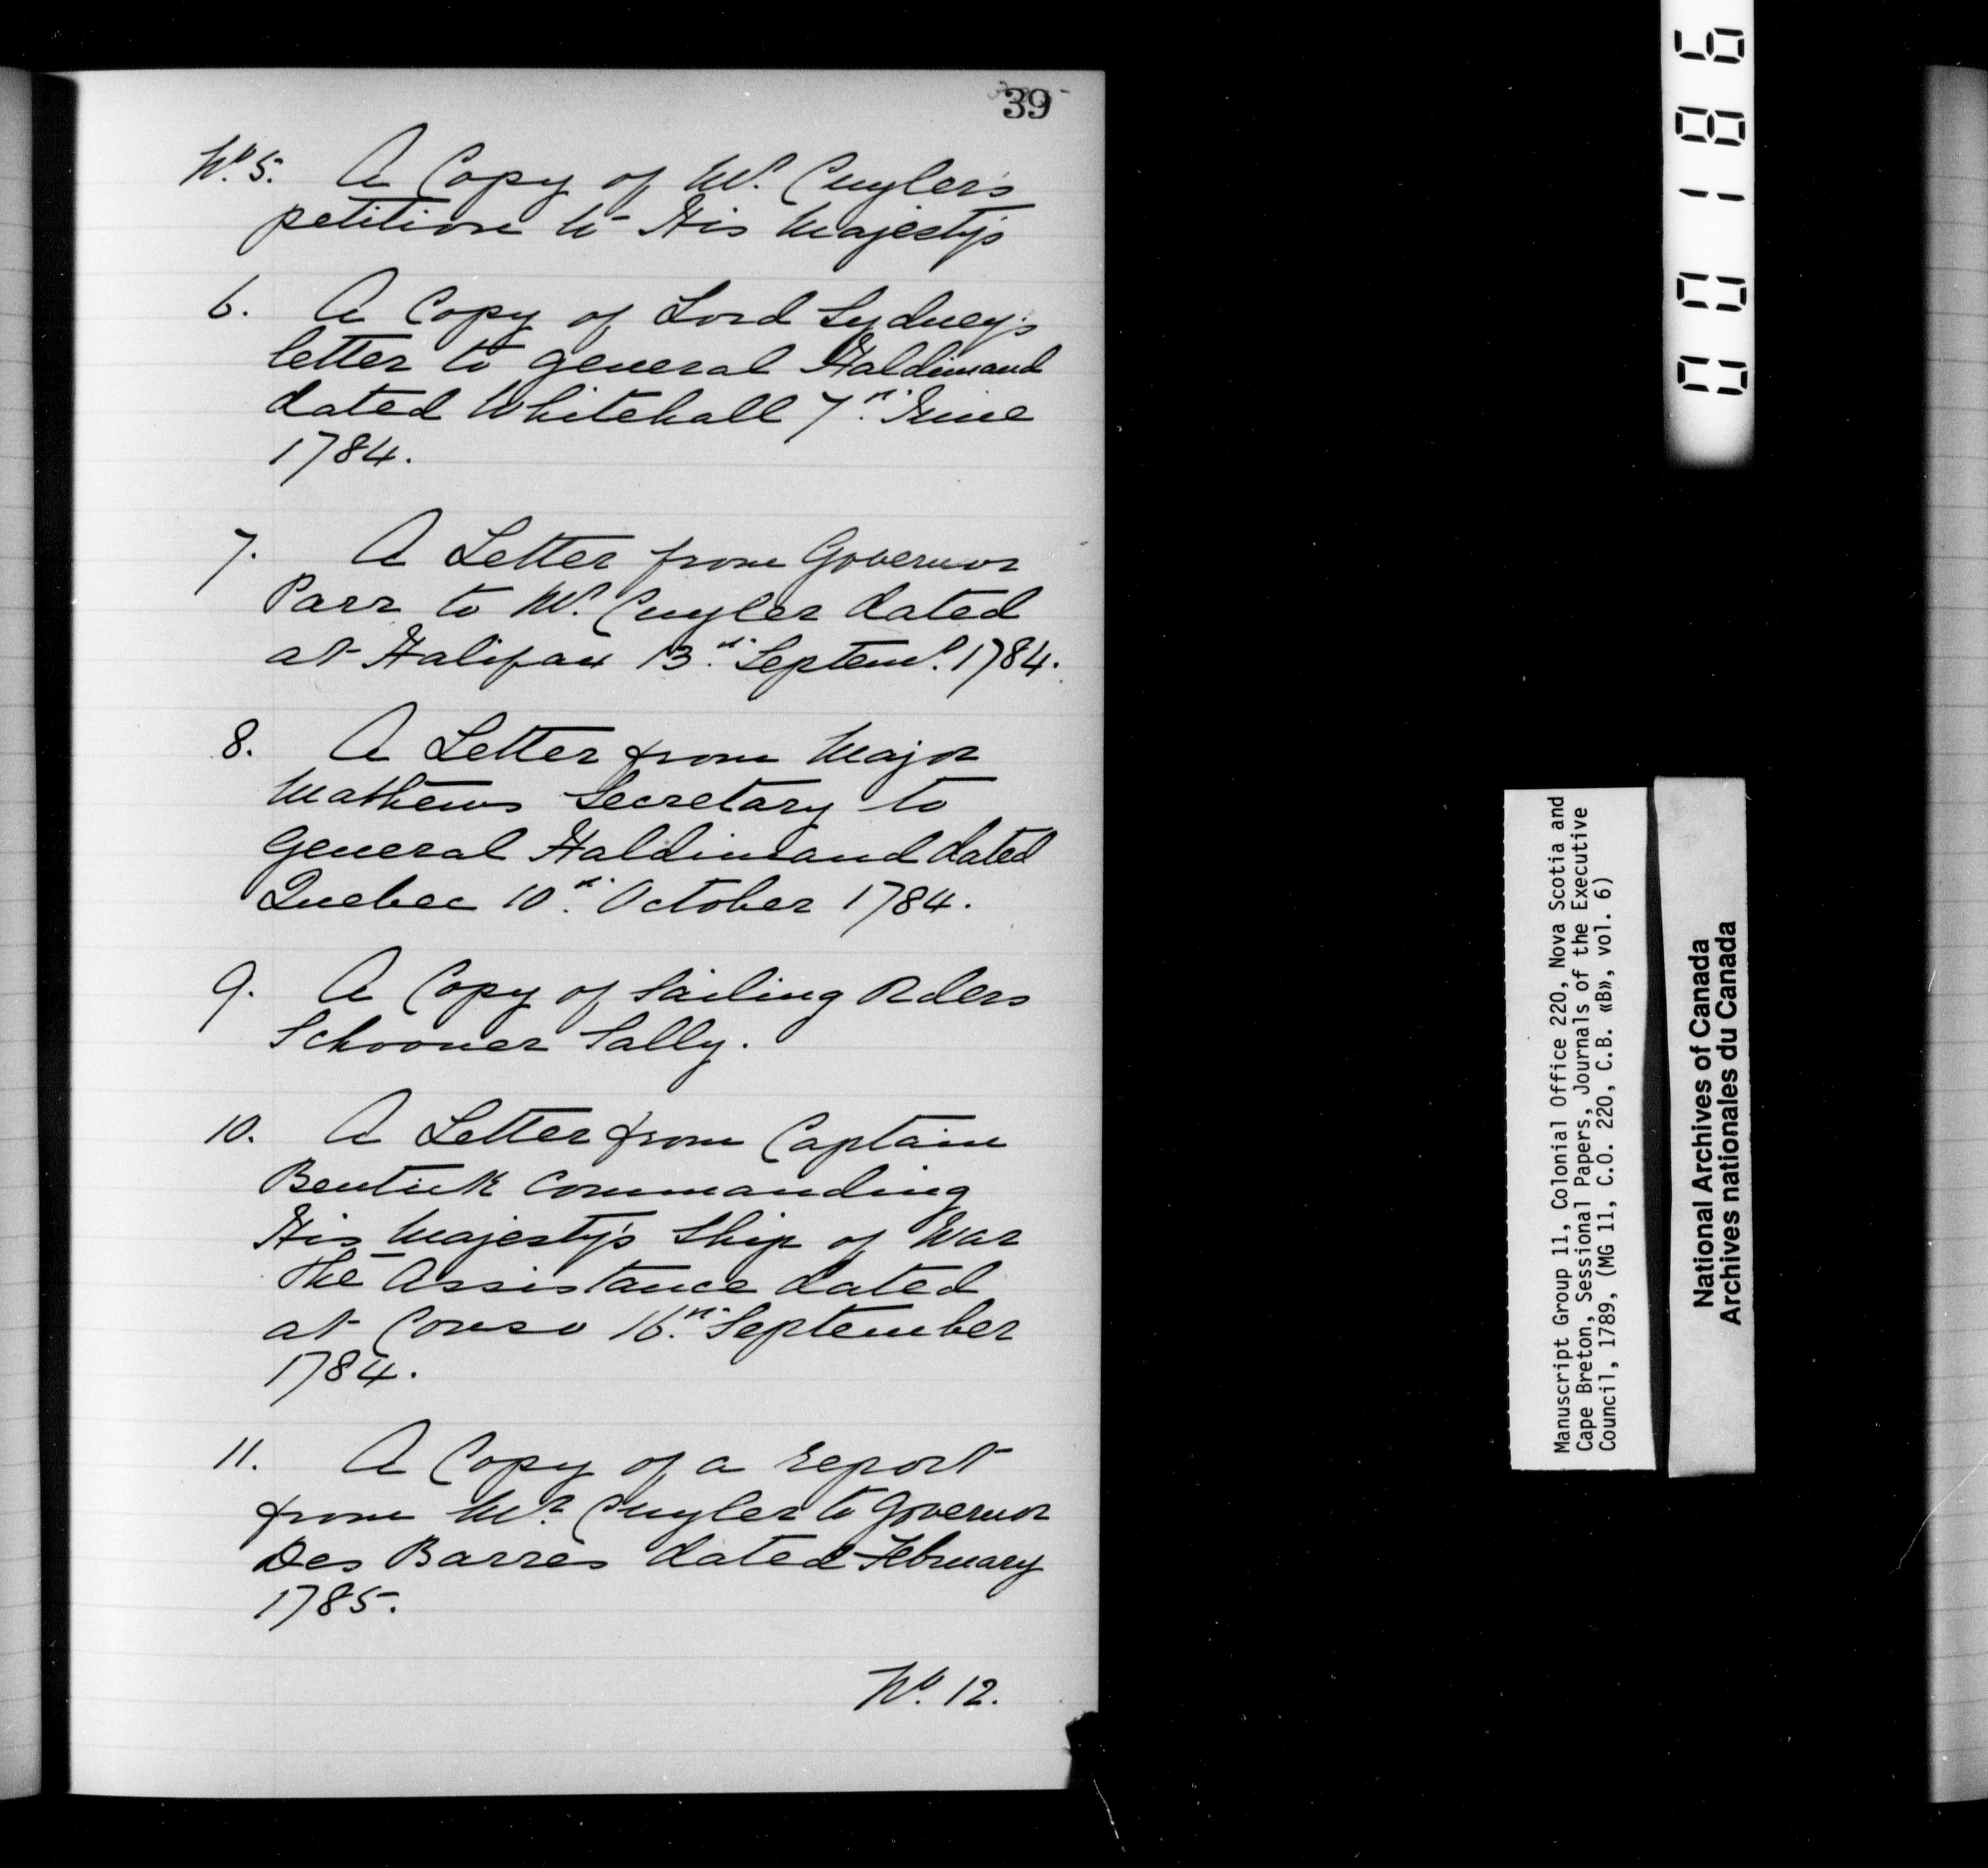 39
No. 5. A Copy of Mr. Cuyler's
petition to His Majesty's
6. A Copy of Lord Sydney's
letter to General Haldimand
dated Whitehall 7th. June
1784.
7. A Letter from Governor
Parr to Mr. Cuyler dated
at Halifax 13th. Septemr. 1784.
8. A Letter from Major
Mathews Secretary to
General Haldimand dated
Quebec 10th. October 1784.
9. A Copy of Sailing Orders
Schooner Sally.
10. A Letter from Captain
Bentick Commanding
His Majesty's Ship of War
The Assistance dated
at Conso 16th. September
1784.
11. A Copy of a report
from Mr. Cuyler to Governor
Des Barres dated February
1785.
No. 12.
001186
Manuscript Group 11, Colonial Office 220, Nova Scotia and
Cape Breton, Sessional Papers, Journals of the Executive
Council, 1789, (MG 11, C.O. 220, C.B. «B», vol. 6)
National Archives of Canada
Archives nationales du Canada